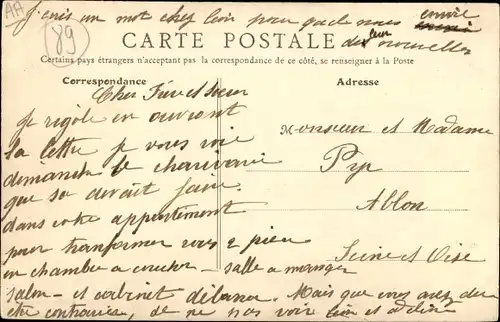 AA
89
J'ecris un mot chez Léon pour qu'elle nous envoie
de leur nouvelles
CARTE POSTALE
Certains pays étrangers n'acceptant pas la correspondance de ce côté, se renseigner à la Poste
Correspondance
Adresse
Cher Frère et sœur
Je rigole en ouvrant
la lettre je vous vois
demander le charivarie
que sa devait faire
dans votre appartement
pour transformer vos 2 pieces
en chambre a coucher - salle a manger
salon - et cabinet
Mais que vous avez du
etre contrariés, de ne nous voir
Monsieur et Madame
Pyp
Ablon
Seine et Oise